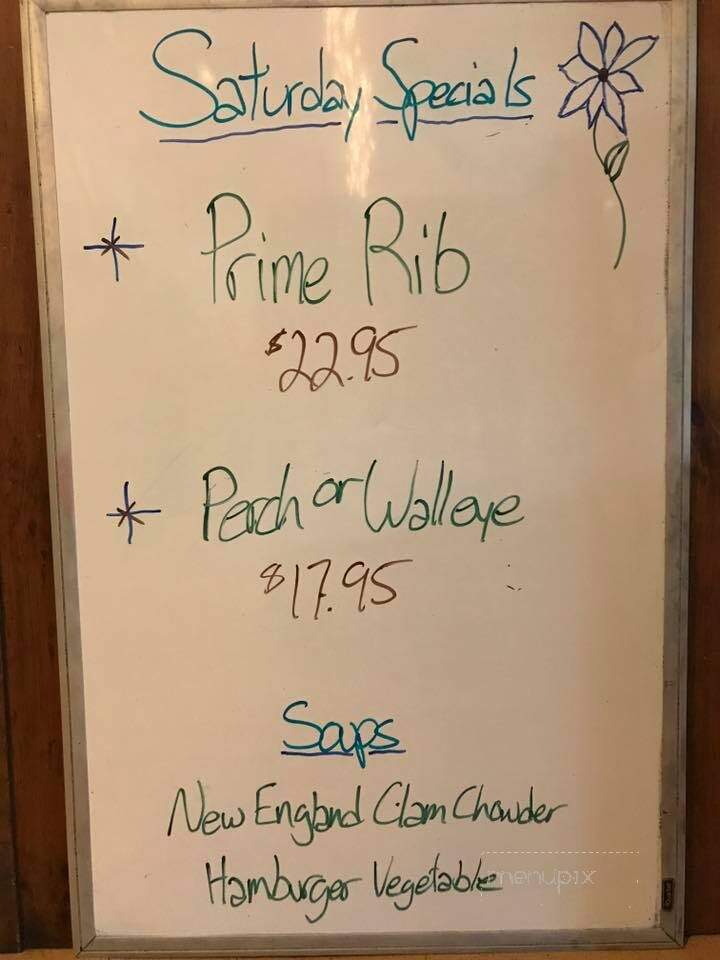 Saturday Specials
Prime Rib
$22.95
Perch or Walleye
$17.95
Soups
New England Clam Chowder
Hamburger Vegetable
menupix